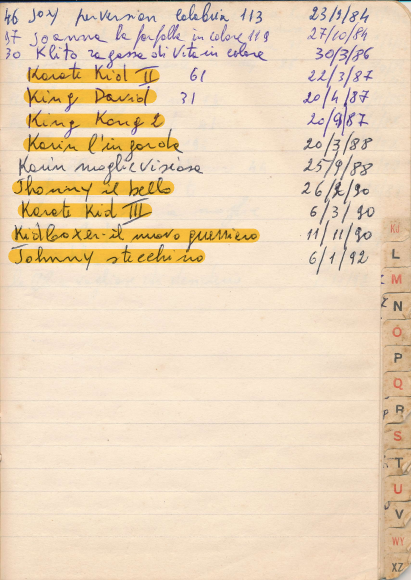 46 Joy perversion calabria 113 23/9/84
37 Joanna la farfalla in calore 119 27/10/84
30 Klito ragassa di vita in calore 30/3/86
Karate Kid II 61 22/3/87
King David 31 20/4/87
King Kong 2 20/9/87
Karin l'ingorda 20/3/88
Karin moglie visiosa 25/9/88
Jhonny il bello 26/2/90
Karate Kid III 6/3/90
Kidboxer-il nuovo guerriero 11/11/90
Johnny stecchino 6/1/92
L
M
N
O
P
Q
R
S
T
U
V
WY
XZ